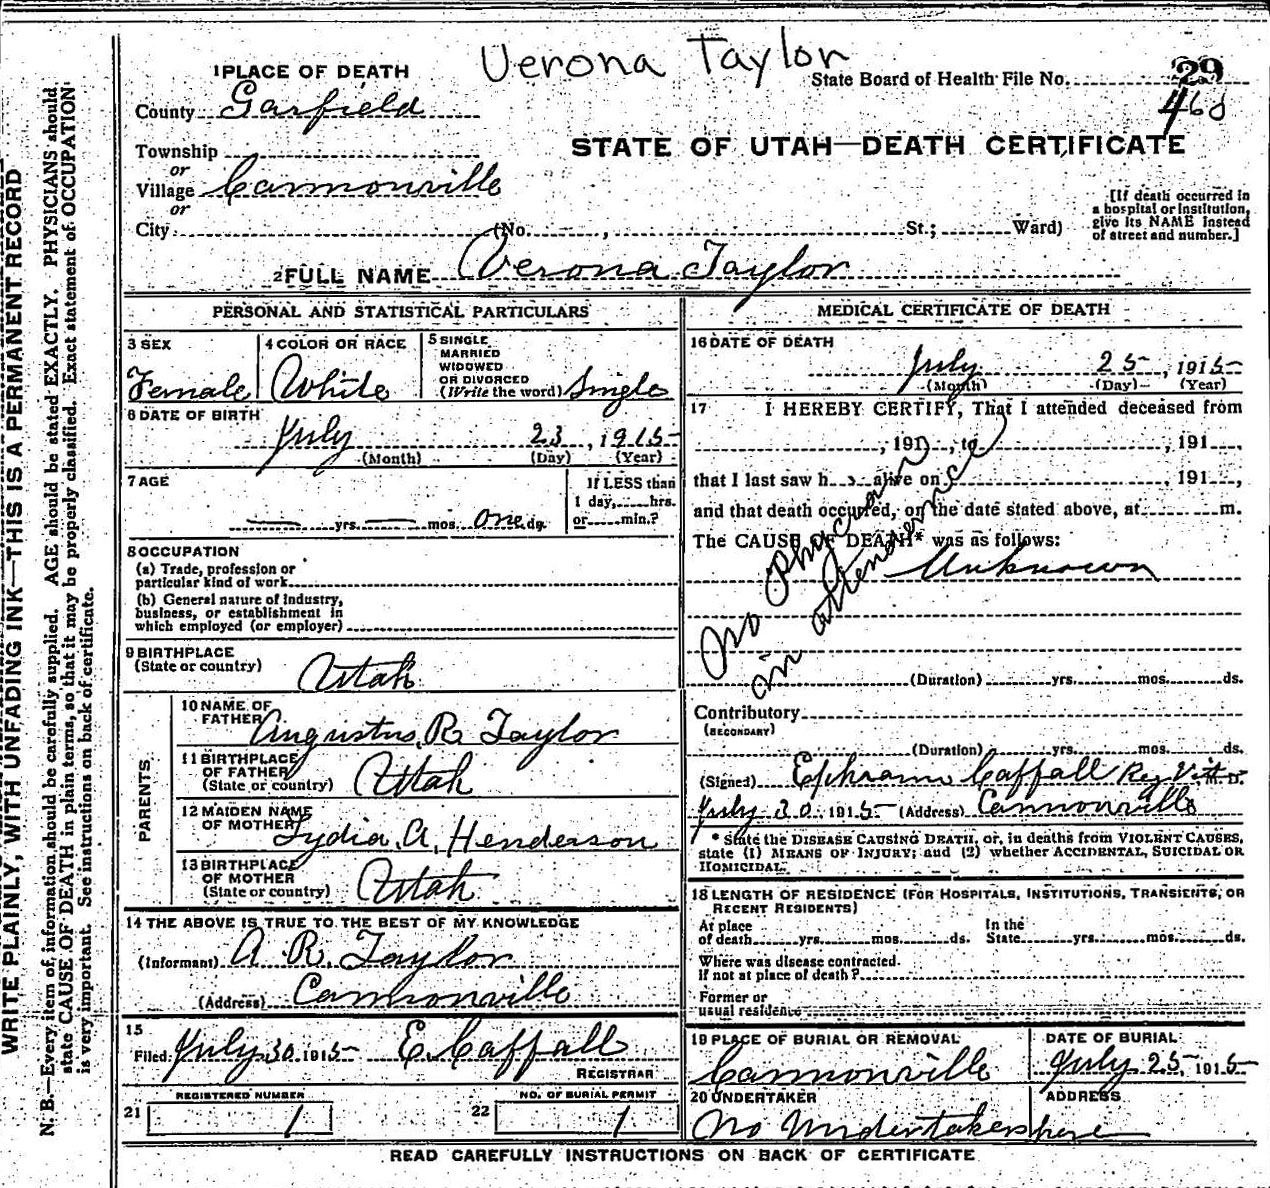 Verona Taylor
1 PLACE OF DEATH
State Board of Health File No. 29
468
County Garfield
STATE OF UTAH—DEATH CERTIFICATE
Township
or
Village Cannonville
or
City (No. , St.; Ward)
[If death occurred in a hospital or institution, give its NAME instead of street and number.]
2 FULL NAME Verona Taylor
PERSONAL AND STATISTICAL PARTICULARS
3 SEX Female
4 COLOR OR RACE White
5 SINGLE MARRIED WIDOWED OR DIVORCED (Write the word) Single
6 DATE OF BIRTH
July 23, 1915
(Month) (Day) (Year)
7 AGE
— yrs. — mos. one ds.
If LESS than 1 day, hrs. or min.?
8 OCCUPATION
(a) Trade, profession or
particular kind of work
(b) General nature of industry,
business, or establishment in
which employed (or employer)
9 BIRTHPLACE
(State or country) Utah
PARENTS
10 NAME OF FATHER Augustus R Taylor
11 BIRTHPLACE OF FATHER (State or country) Utah
12 MAIDEN NAME OF MOTHER Lydia A. Henderson
13 BIRTHPLACE OF MOTHER (State or country) Utah
14 THE ABOVE IS TRUE TO THE BEST OF MY KNOWLEDGE
(Informant) A R. Taylor
(Address) Cannonville
15
Filed July 30 1915 E. Caffall
REGISTRAR
21 REGISTERED NUMBER 1
22 NO. OF BURIAL PERMIT 1
MEDICAL CERTIFICATE OF DEATH
16 DATE OF DEATH
July 25, 1915
(Month) (Day) (Year)
17 I HEREBY CERTIFY, That I attended deceased from
, 191 , to , 191 ,
that I last saw h alive on , 191 ,
and that death occurred, on the date stated above, at m.
The CAUSE OF DEATH* was as follows:
Unknown
No Physician
in attendence
(Duration) yrs. mos. ds.
Contributory
(SECONDARY)
(Duration) yrs. mos. ds.
(Signed) Ephraim Caffall Reg Vitt M. D.
July 30 1915 (Address) Cannonville
* State the DISEASE CAUSING DEATH, or, in deaths from VIOLENT CAUSES,
state (1) MEANS OF INJURY; and (2) whether ACCIDENTAL, SUICIDAL OR
HOMICIDAL.
18 LENGTH OF RESIDENCE (FOR HOSPITALS, INSTITUTIONS, TRANSIENTS, OR
RECENT RESIDENTS)
At place of death yrs. mos. ds. In the State yrs. mos. ds.
Where was disease contracted.
if not at place of death?
Former or
usual residence
19 PLACE OF BURIAL OR REMOVAL Cannonville
DATE OF BURIAL July 25, 1915
20 UNDERTAKER No Undertakers here
ADDRESS
READ CAREFULLY INSTRUCTIONS ON BACK OF CERTIFICATE
WRITE PLAINLY, WITH UNFADING INK—THIS IS A PERMANENT RECORD
N. B.—Every item of information should be carefully supplied. AGE should be stated EXACTLY. PHYSICIANS should
state CAUSE OF DEATH in plain terms, so that it may be properly classified. Exact statement of OCCUPATION
is very important. See instructions on back of certificate.